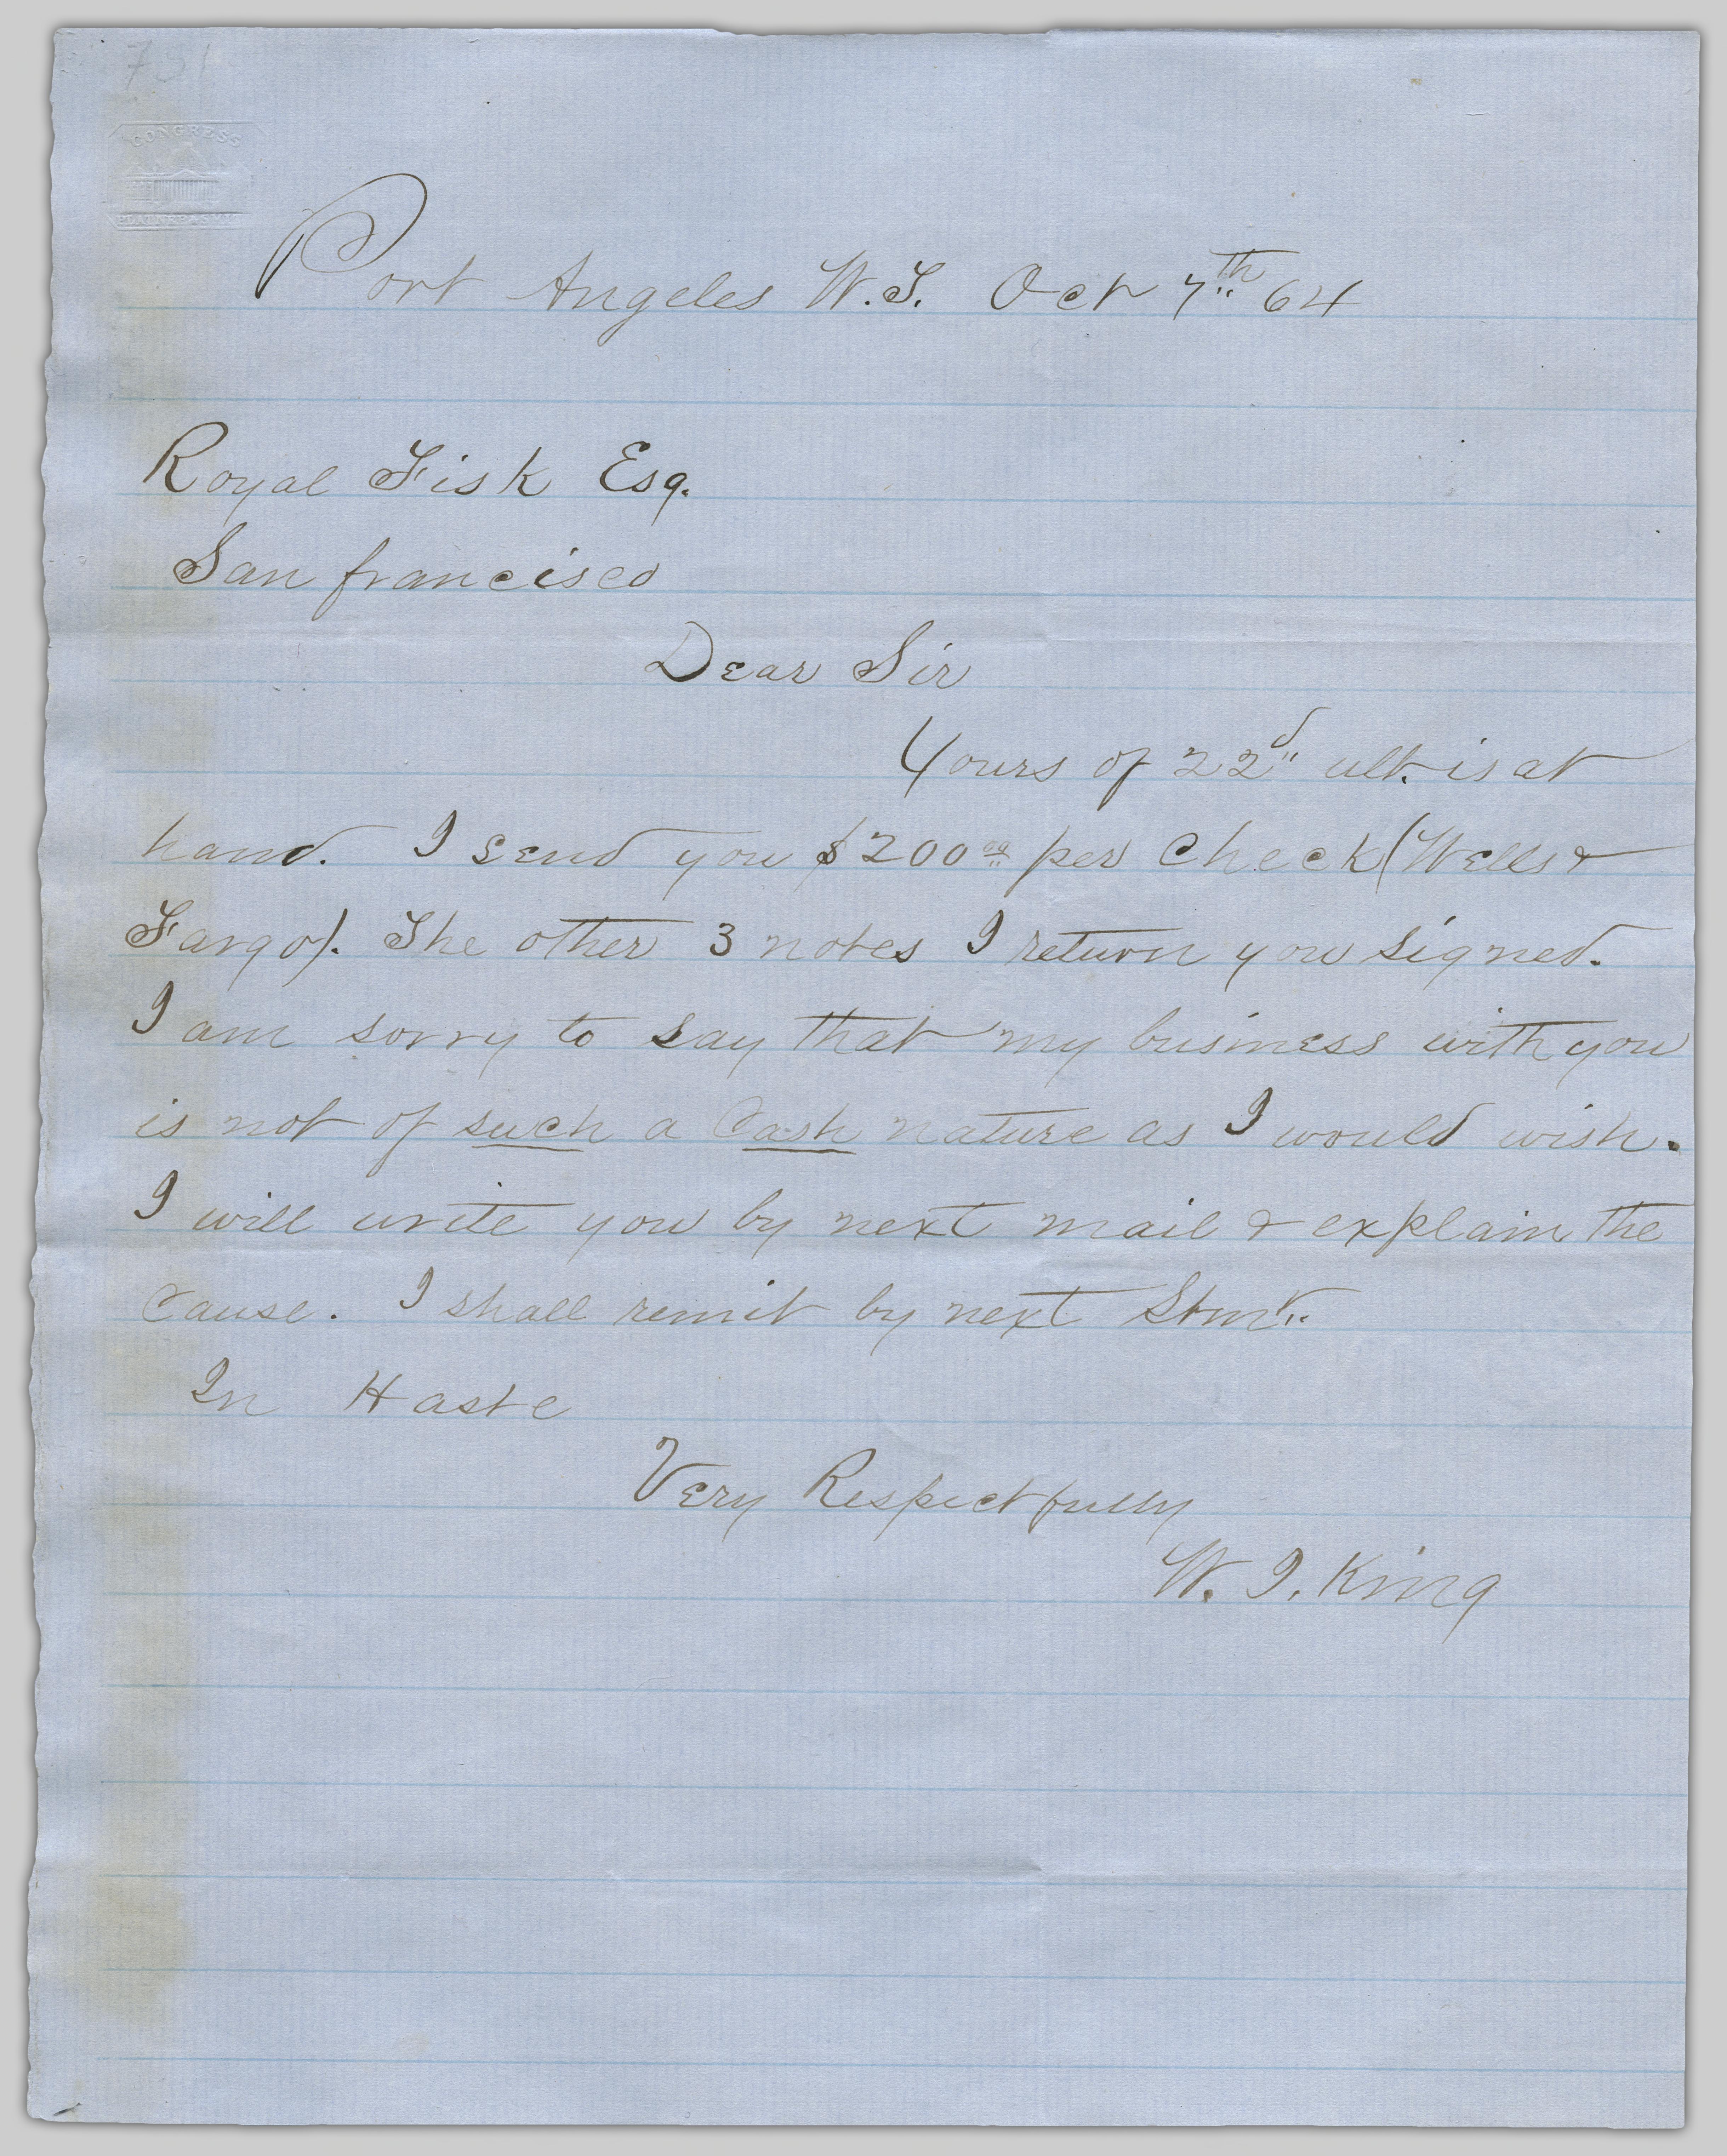 CONGRESS
Port Angeles W.T. Oct 7th 64
Royal Fisk Esq.
San francisco
Dear Sir
Yours of 22d ult. is at
hand. I send you $200.00 per Check (Wells &
Fargo). The other 3 notes I return you signed.
I am sorry to say that my business with you
is not of such a Cash nature as I would wish.
I will write you by next mail & explain the
Cause. I shall remit by next Stmr.
In Haste
Very Respectfully
W. I. King